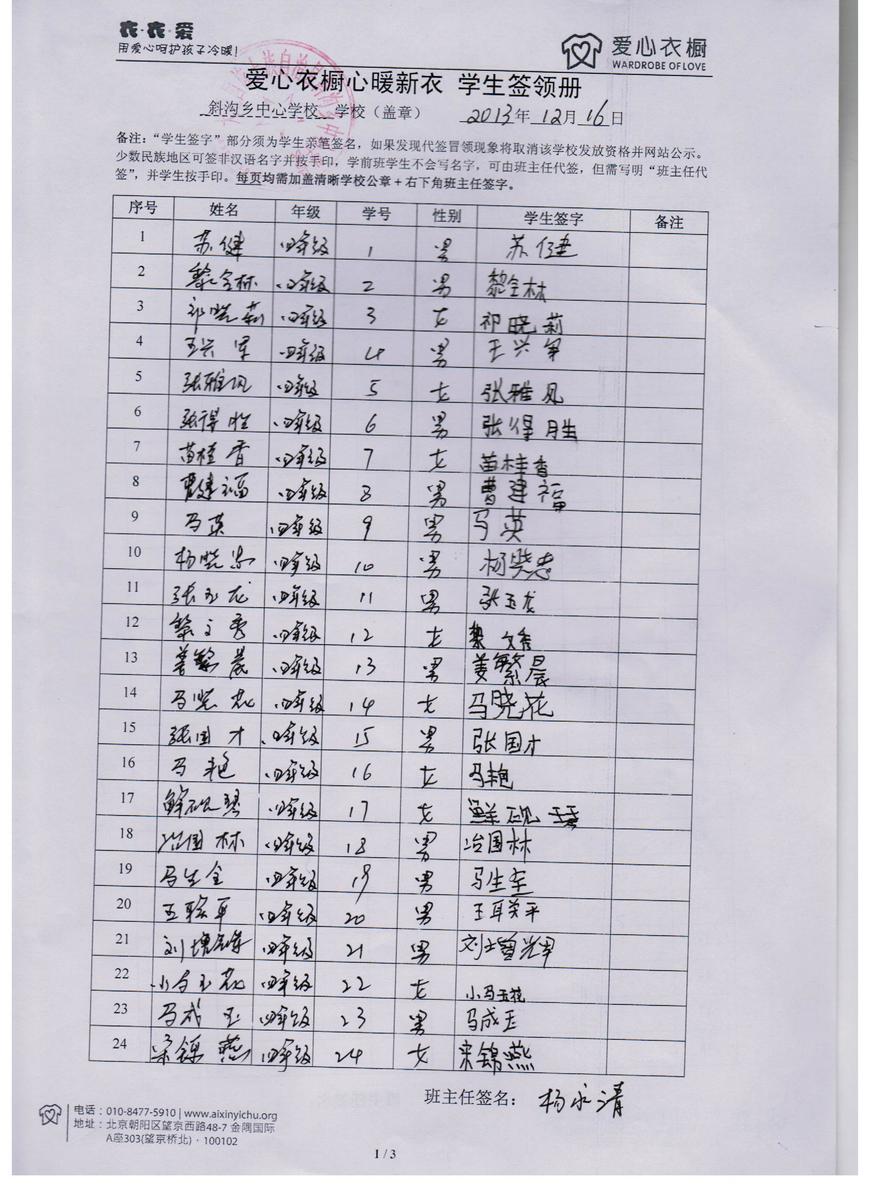 衣·衣·爱
用爱心呵护孩子冷暖!
爱心衣橱
WARDROBE OF LOVE
爱心衣橱心暖新衣 学生签领册
斜沟乡中心学校 学校（盖章） 2013年 12月 16日
备注：“学生签字”部分须为学生亲笔签名，如果发现代签冒领现象将取消该学校发放资格并网站公示。
少数民族地区可签非汉语名字并按手印，学前班学生不会写名字，可由班主任代签，但需写明“班主任代
签”，并学生按手印。每页均需加盖清晰学校公章+右下角班主任签字。
序号 姓名 年级 学号 性别 学生签字 备注
1 苏健 四年级 1 男 苏健
2 黎全林 四年级 2 男 黎全林
3 祁晓莉 四年级 3 女 祁晓莉
4 王兴军 四年级 4 男 王兴军
5 张雅凤 四年级 5 女 张雅凤
6 张得胜 四年级 6 男 张得胜
7 苗桂香 四年级 7 女 苗桂香
8 曹建福 四年级 8 男 曹建福
9 马英 四年级 9 男 马英
10 杨晓忠 四年级 10 男 杨晓忠
11 张玉龙 四年级 11 男 张玉龙
12 黎文秀 四年级 12 女 黎文秀
13 姜繁晨 四年级 13 男 姜繁晨
14 马晓花 四年级 14 女 马晓花
15 张国才 四年级 15 男 张国才
16 马艳 四年级 16 女 马艳
17 鲜砚琴 四年级 17 女 鲜砚
18 冶国林 四年级 18 男 冶国林
19 马生全 四年级 19 男 马生全
20 王联军 四年级 20 男 王联平
21 刘增辉 四年级 21 男 刘增辉
22 小马玉花 四年级 22 女 小马玉花
23 马成玉 四年级 23 男 马成玉
24 宋锦燕 四年级 24 女 宋锦燕
班主任签名： 杨永清
电话：010-8477-5910 | www.aixinyichu.org
地址：北京朝阳区望京西路48-7 金隅国际
A座303(望京桥北)·100102
1 / 3